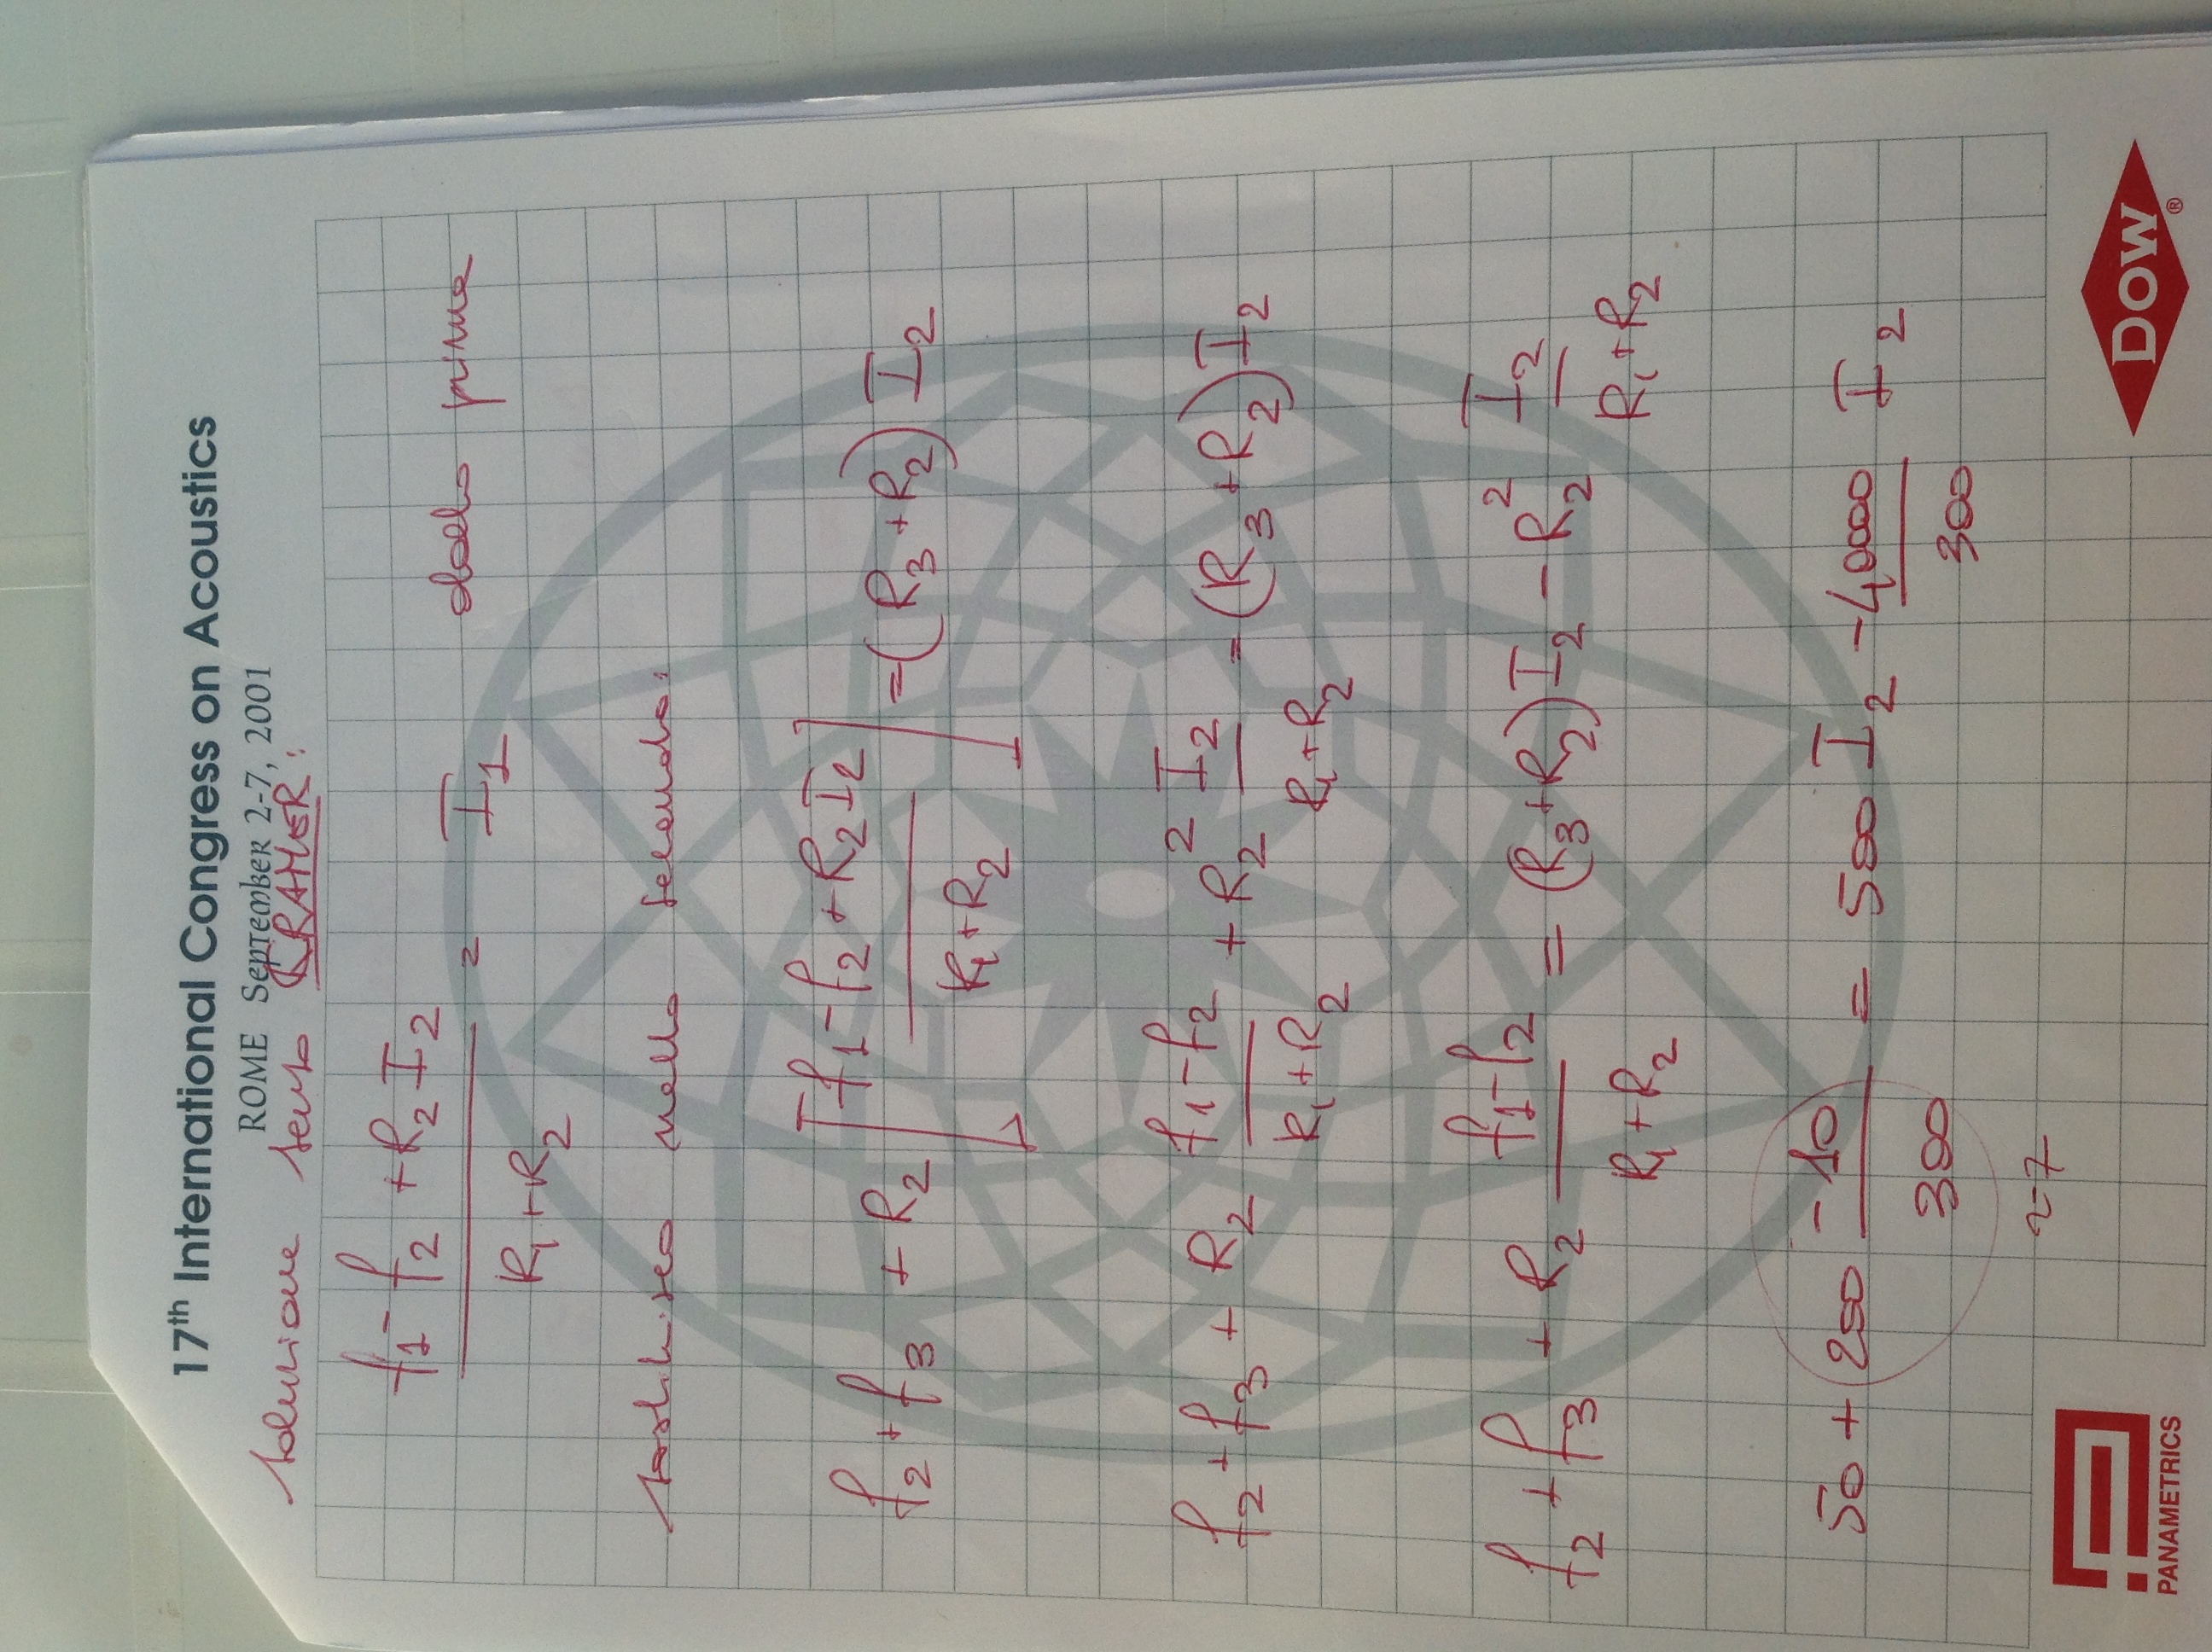 17th International Congress on Acoustics
ROME September 2-7, 2001
soluzione senza KRAMER:
f₁-f₂ +R₂I₂
R₁+R₂
= I₁ dalla prima
sostituisco nella seconda:
f₂+f₃ +R₂ [f₁-f₂+R₂I₂ / R₁+R₂] =(R₃+R₂) I₂
f₂+f₃ + R₂ f₁-f₂ / R₁+R₂ + R₂² I₂ / R₁+R₂ = (R₃+R₂)I₂
f₂+f₃ + R₂ f₁-f₂ / R₁+R₂ = (R₃+R₂)I₂ - R₂² I₂ / R₁+R₂
50 + 200 -10 / 300 = 500 I₂ - 40000 / 300 I₂
~-7
PANAMETRICS
DOW
®